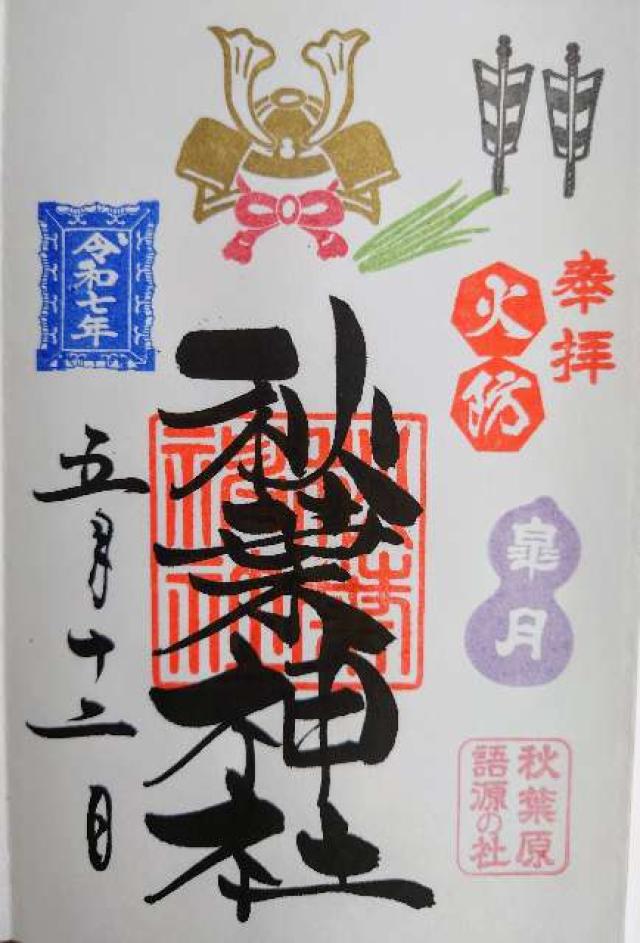 奉拝
火防
皐月
秋葉原
語源の社
秋葉神社
令和七年
五月十二日